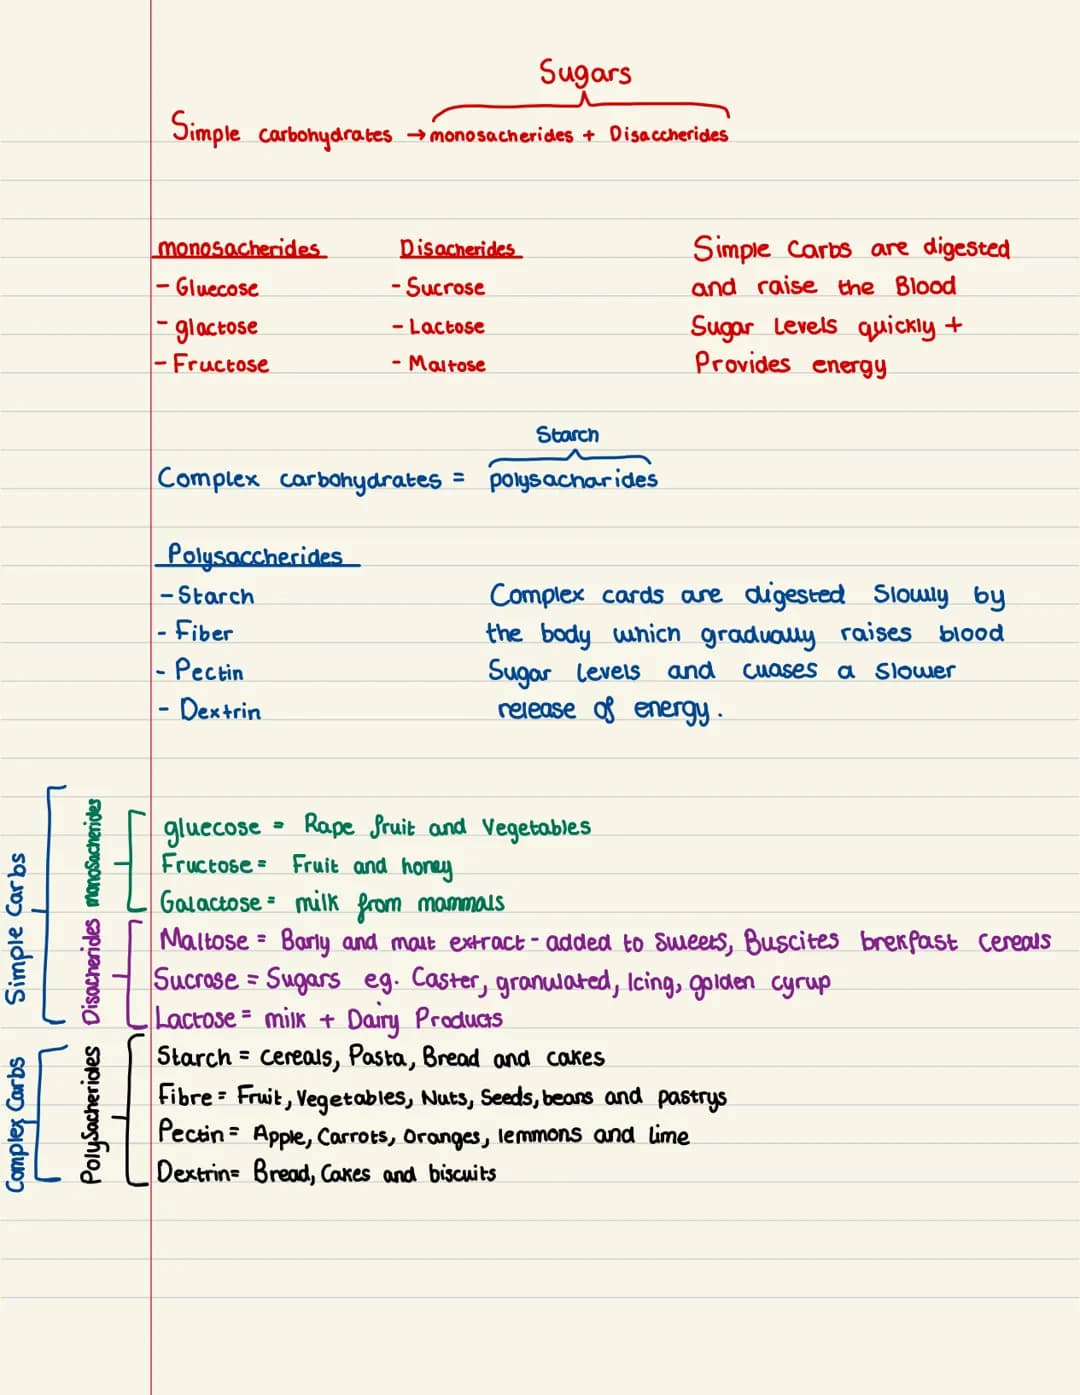 Sugars
Simple carbohydrates → monosacherides + Disaccherides
monosacherides Disacherides Simple Carbs are digested
- Gluecose - Sucrose and raise the Blood
- glactose - Lactose Sugar Levels quickly +
- Fructose - Maltose Provides energy
Starch
Complex carbohydrates = polysacharides
Polysaccherides
- Starch Complex cards are digested Slowly by
- Fiber the body which gradually raises blood
- Pectin Sugar levels and cuases a slower
- Dextrin release of energy.
Simple Carbs
monosacherides
gluecose = Rape fruit and Vegetables
Fructose = Fruit and honey
Galactose = milk from mammals
Disacherides
Maltose = Barly and malt extract - added to sweets, Buscites brekfast cereals
Sucrose = Sugars eg. Caster, granulated, Icing, golden cyrup
Lactose = milk + Dairy Products
Complex Carbs
Polysacherides
Starch = cereals, Pasta, Bread and cakes
Fibre = Fruit, Vegetables, Nuts, Seeds, beans and pastrys
Pectin = Apple, Carrots, Oranges, lemmons and lime
Dextrin = Bread, Cakes and biscuits